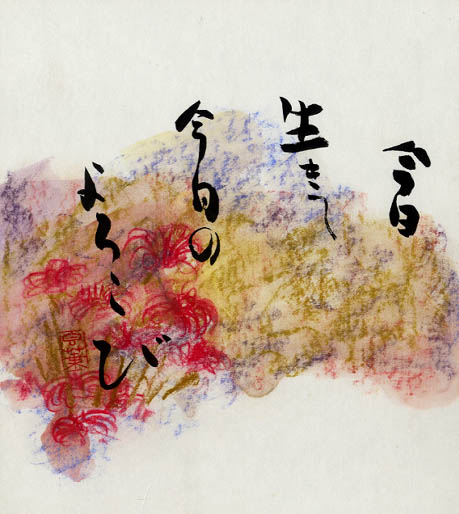 今日
生きて
今日の
よろこび